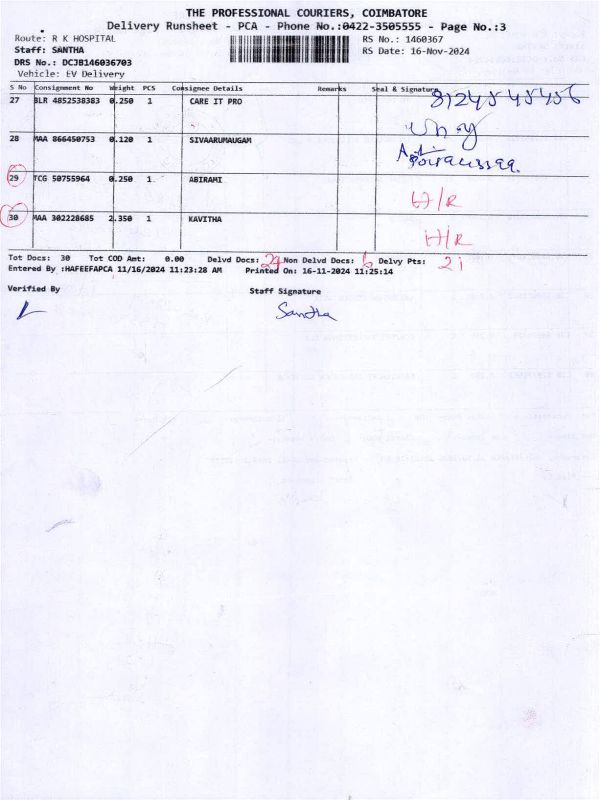 THE PROFESSIONAL COURIERS, COIMBATORE
Delivery Runsheet - PCA - Phone No.:0422-3505555 - Page No.:3
Route: R K HOSPITAL RS No.: 1460367
Staff: SANTHA RS Date: 16-Nov-2024
DRS No.: DCJB146036703
Vehicle: EV Delivery
S No Consignment No Weight PCS Consignee Details Remarks Seal & Signature
27 BLR 4852538383 0.250 1 CARE IT PRO 8124545456
28 MAA 866450753 0.120 1 SIVAARUMAUGAM
29 TCG 50755964 0.250 1 ABIRAMI H/R
30 MAA 302228685 2.350 1 KAVITHA H/R
Tot Docs: 30 Tot COD Amt: 0.00 Delvd Docs: 24 Non Delvd Docs: 6 Delvy Pts: 21
Entered By :HAFEEFAPCA 11/16/2024 11:23:28 AM Printed On: 16-11-2024 11:25:14
Verified By Staff Signature
Santha